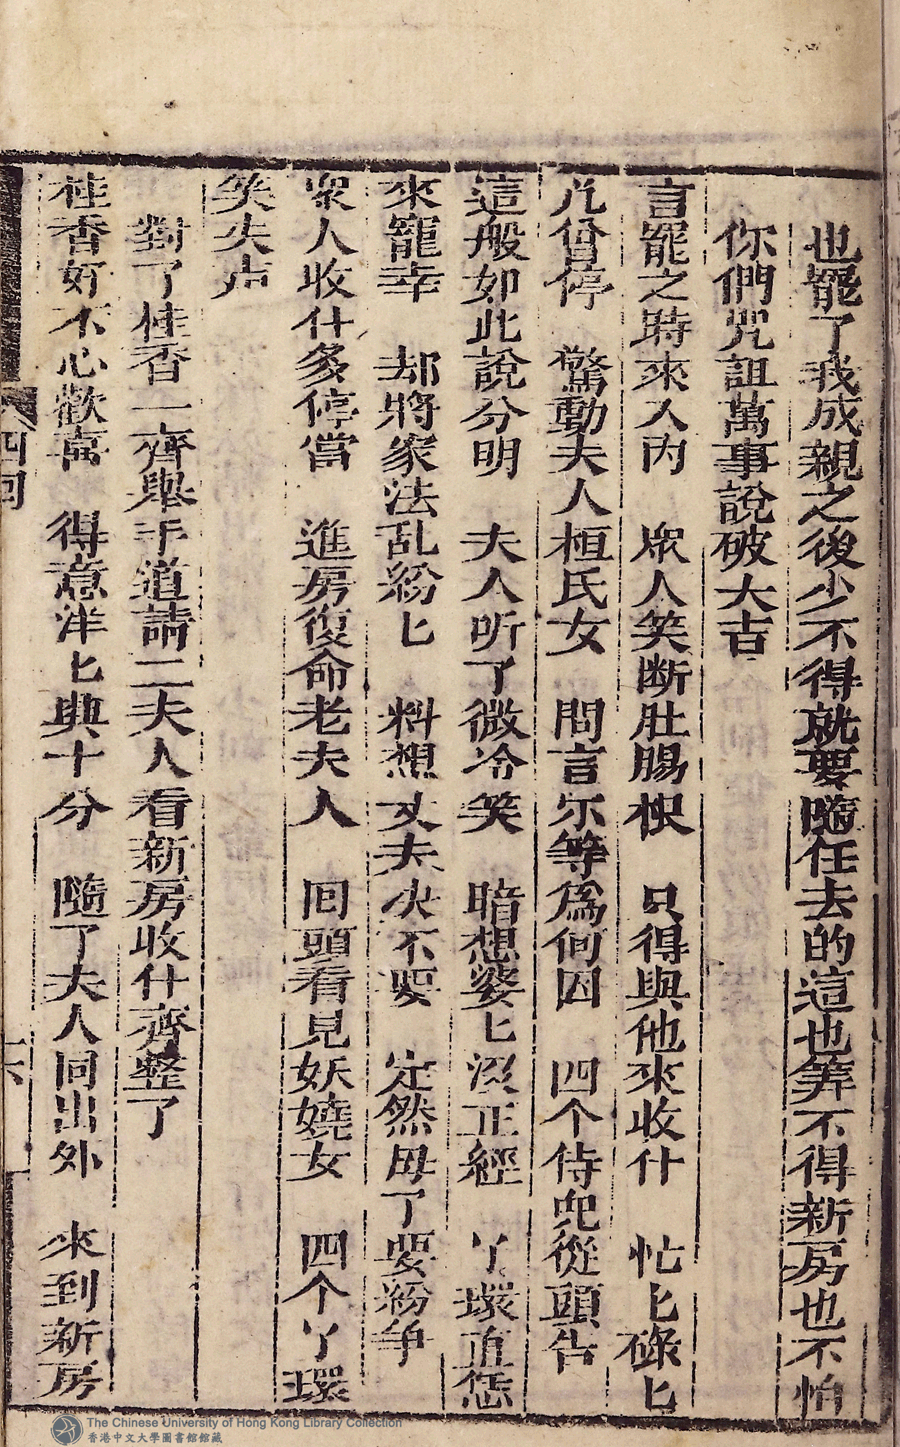 也罷了我成親之後少不得就要隨任去的這也筭不得新房也不怕
你們咒詛萬事說破大吉
言罷之時來入內　衆人笑断肚腸根　只得與他來收什　忙匕碌匕
几曾停　驚動夫人桓氏女　問言尔等爲何因　四个侍兒從頭告
這般如此說分明　夫人听了微冷笑　暗想婆匕沒正經　丫環直恁
來寵幸　却將家法乱紛匕　料想丈夫决不要　定然毋了要紛争
衆人收什多停當　進房復命老夫人　回頭看見妖嬈女　四个丫環
笑失声
對了桂香一齊舉手道請二夫人看新房收什齊整了
桂香好不心歡喜　得意洋匕興十分　隨了夫人同出外　來到新房
四回
六
The Chinese University of Hong Kong Library Collection
香港中文大學圖書館館藏